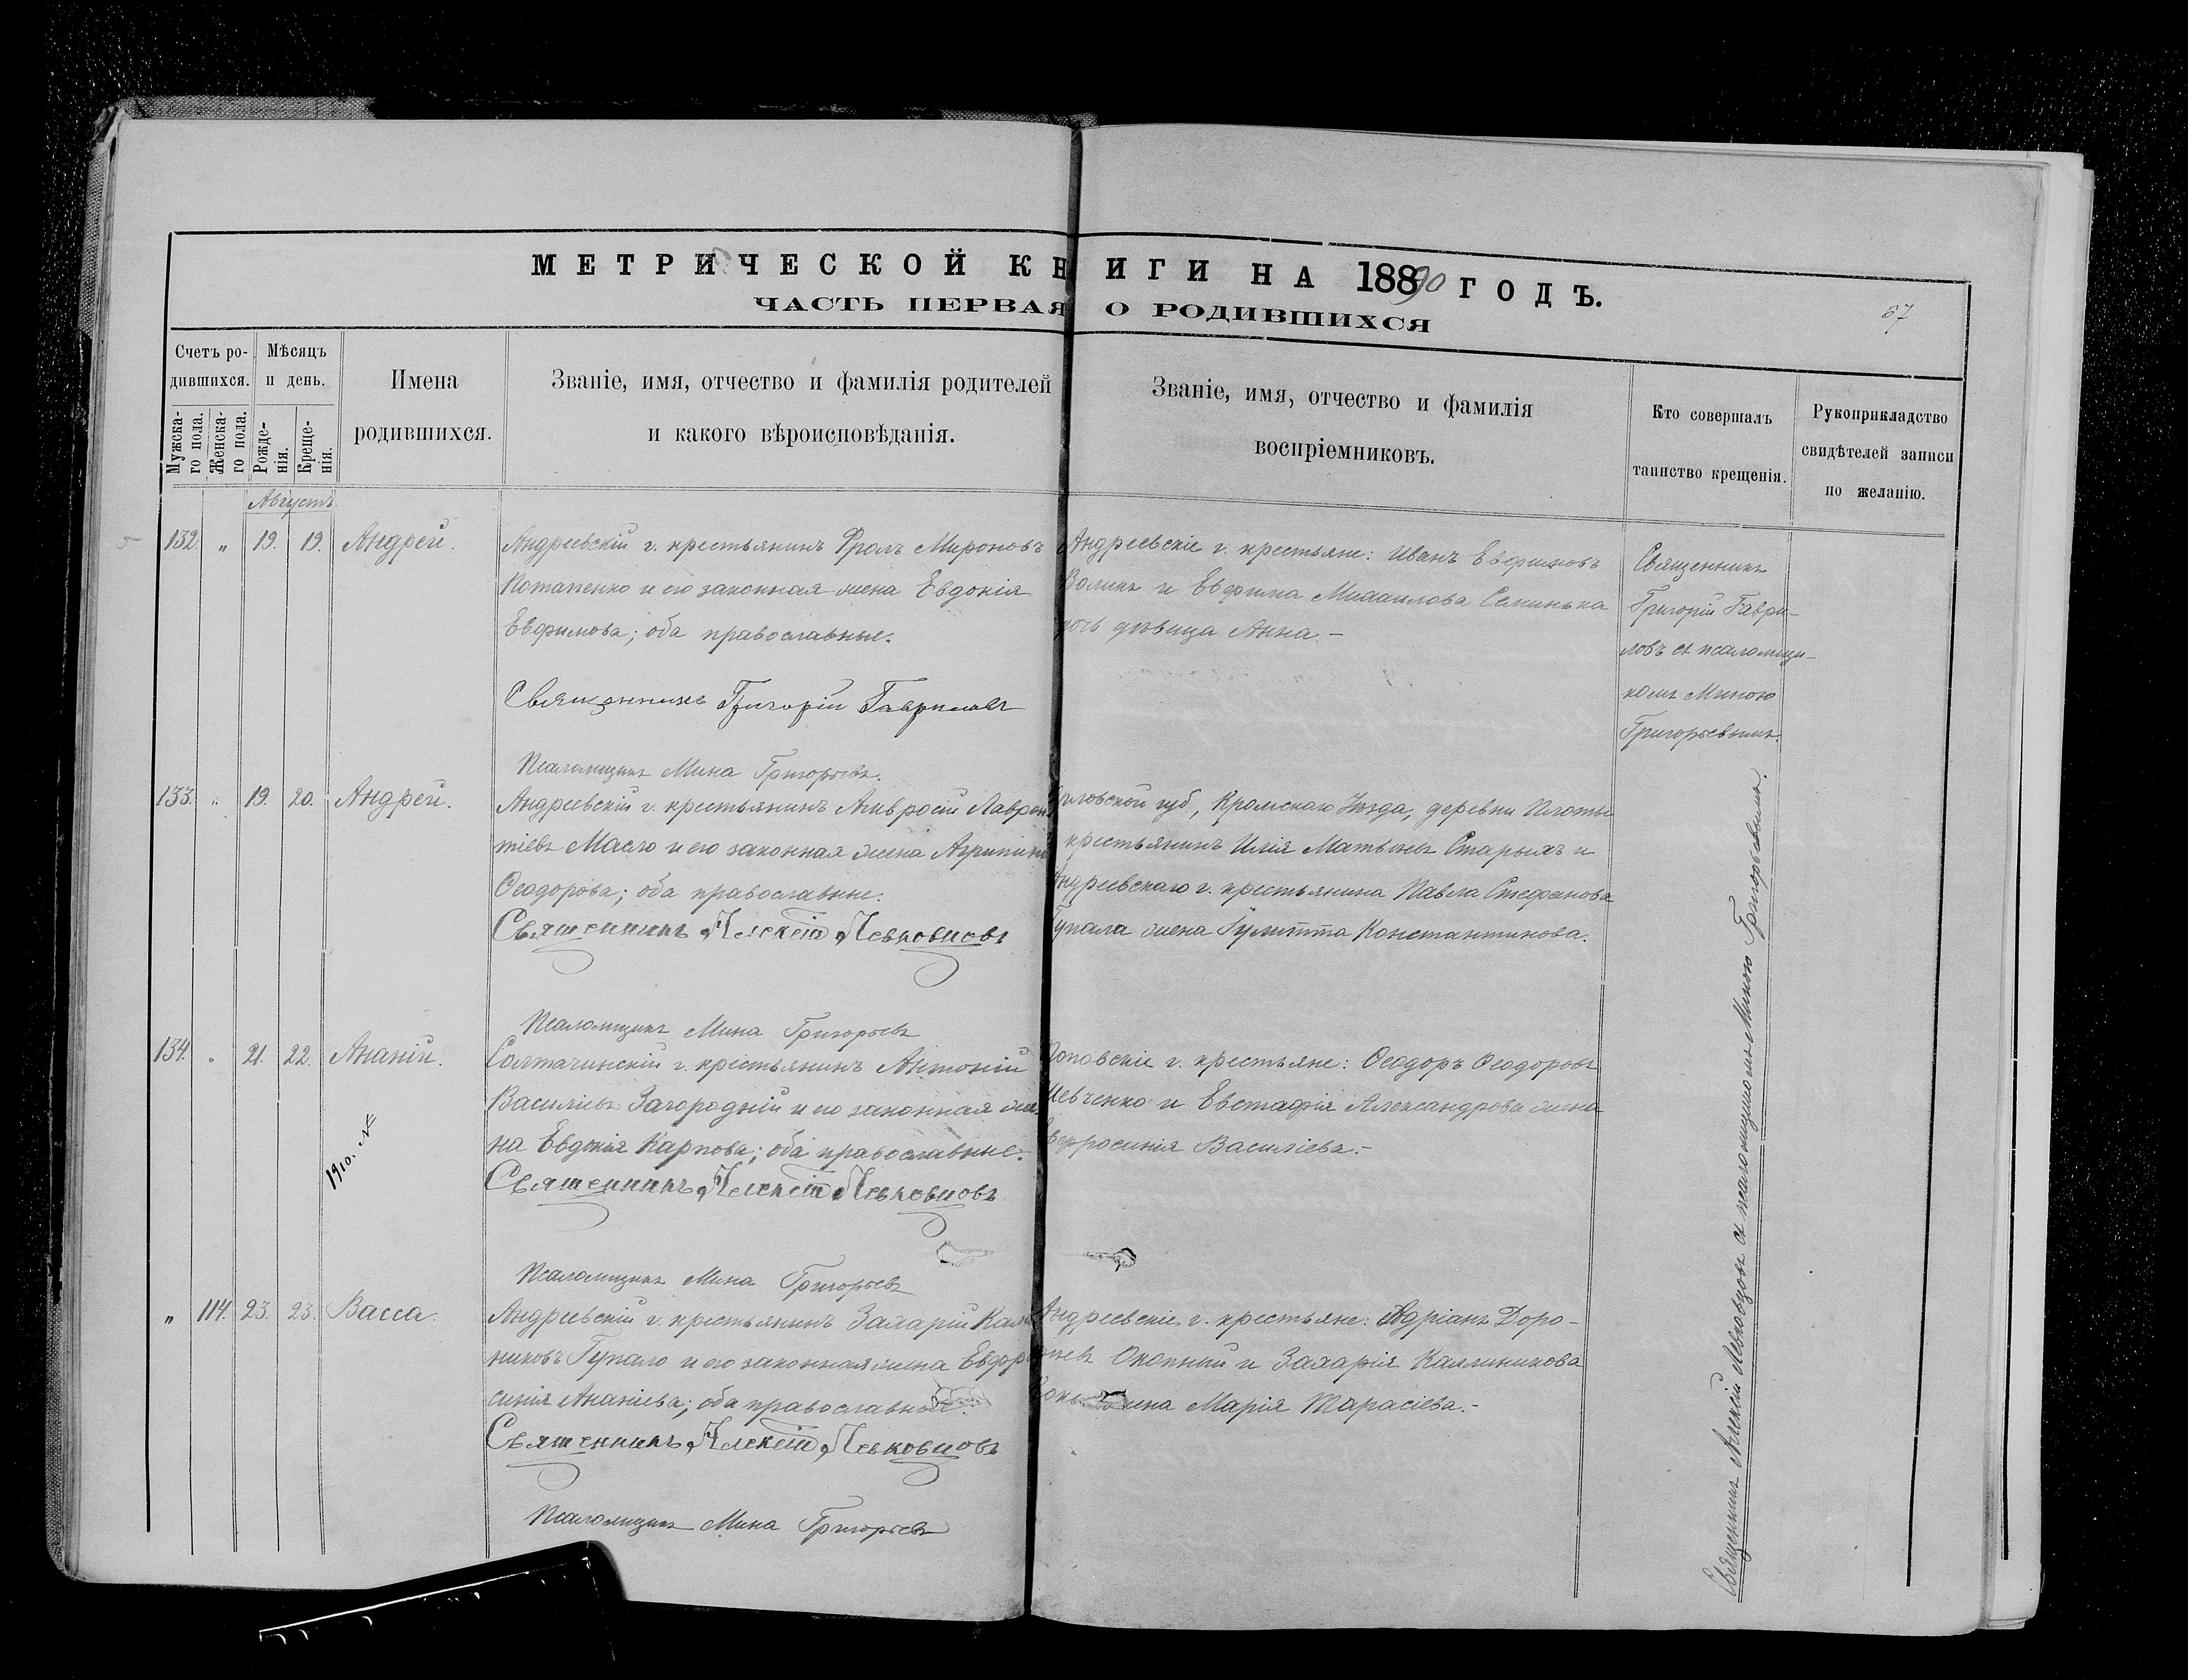 МЕТРИЧЕСКОЙ КНИГИ НА 1890 ГОДЪ.
ЧАСТЬ ПЕРВАЯ О РОДИВШИХСЯ
67
Счетъ ро-
дившихся.
Мужска-
го пола.
Женска-
го пола.
Мѣсяцъ
и день.
Рожде-
нія.
Креще-
нія.
Имена
родившихся.
Званіе, имя, отчество и фамилія родителей
и какого вѣроисповѣданія.
Званіе, имя, отчество и фамилія
воспріемниковъ.
Кто совершалъ
таинство крещенія.
Рукоприкладство
свидѣтелей записи
по желанію.
Августъ.
132. „ 19. 19. Андрей.
Андреевскій г. крестьянинъ Фролъ Мироновъ
Потапенко и его законная жена Евдокія
Евфимова; оба православные.
Священникъ Григорій Гавриловъ
Псаломщикъ Мина Григорьевъ.
Андреевскіе г. крестьяне: Иванъ Евфимовъ
Воликъ и Евфима Михаилова Семинька
дочь дѣвица Анна.-
Священникъ
Григорій Гаври-
ловъ съ псаломщи-
комъ Миною
Григорьевымъ.
133. „ 19. 20. Андрей.
Андреевскій г. крестьянинъ Амвросій Лаврен
тіевъ Масло и его законная жена Агрипина
Ѳеодорова; оба православные.
Священникъ Алексій Левковцовъ
Псаломщикъ Мина Григорьевъ
Орловской губ., Кромскаго Уѣзда, деревни Плоты
крестьянинъ Илія Матвѣевъ Старыхъ и
Андреевскаго г. крестьянина Павла Стефанова
Гупала жена Іулитта Константинова.
134. „ 21. 22. Ананій.
1910.
Солтачинскій г. крестьянинъ Антоній
Василіевъ Загородній и его законная же-
на Евдокія Карпова; оба православные.
Священникъ Алексій Левковцовъ
Псаломщикъ Мина Григорьевъ
Поповскіе г. крестьяне: Ѳеодоръ Ѳеодоровъ
Шевченко и Евстафія Александрова жена
Евфросинія Василіева.-
„ 114. 23. 23. Васса.
Андреевскій г. крестьянинъ Захарій Калли
никовъ Гупало и его законная жена Евфро
синія Ананіева; оба православные.
Священникъ Алексій Левковцовъ
Псаломщикъ Мина Григорьевъ
Андреевскіе г. крестьяне: Адріанъ Доро-
Окопный и Захарія Каллиникова
жена Марія Тарасіева.-
Священникъ Алексій Левковцовъ съ псаломщикомъ Миною Григорьевымъ.